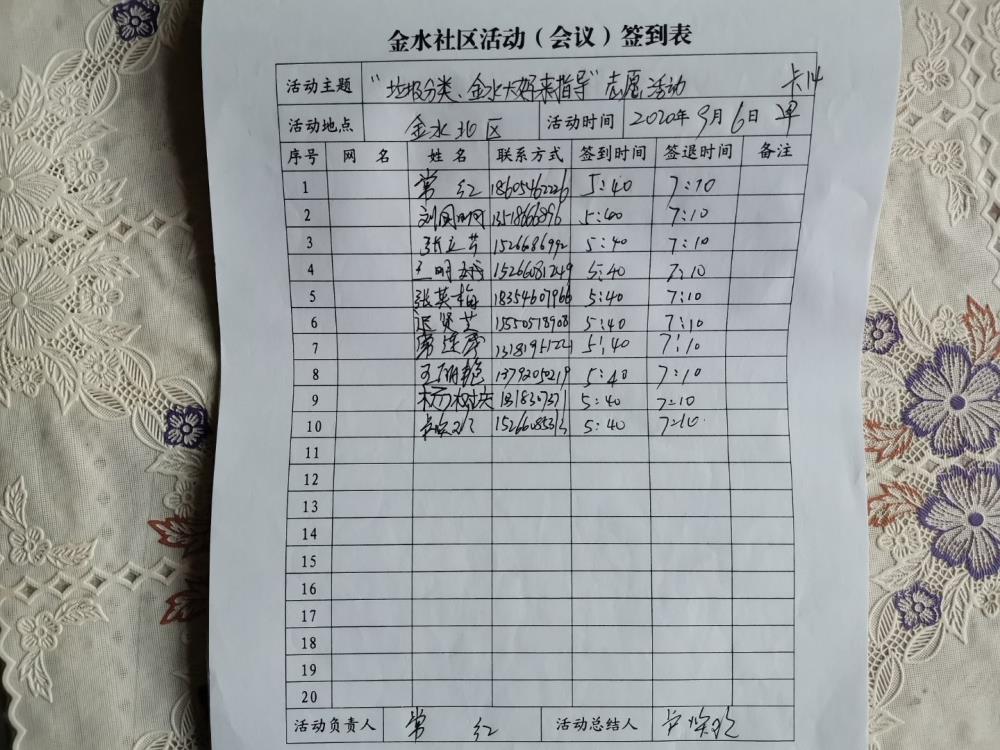 金水社区活动（会议）签到表
活动主题 “垃圾分类、金水大好来指导”志愿活动 卡14
活动地点 金水北区 活动时间 2020年9月6日
序号 网 名 姓 名 联系方式 签到时间 签退时间 备注
1 常 红 18605462226 5:40 7:10
2 5:40 7:10
3 张立芳 5:40 7:10
4 王明 15266081249 5:40 7:10
5 张英梅 18354607966 5:40 7:10
6 贤芝 15550518908 5:40 7:10
7 5:40 7:10
8 王 艳 13792050219 5:40 7:10
9 杨 5:40 7:10
10 5:40 7:10
11
12
13
14
15
16
17
18
19
20
活动负责人 常 红 活动总结人